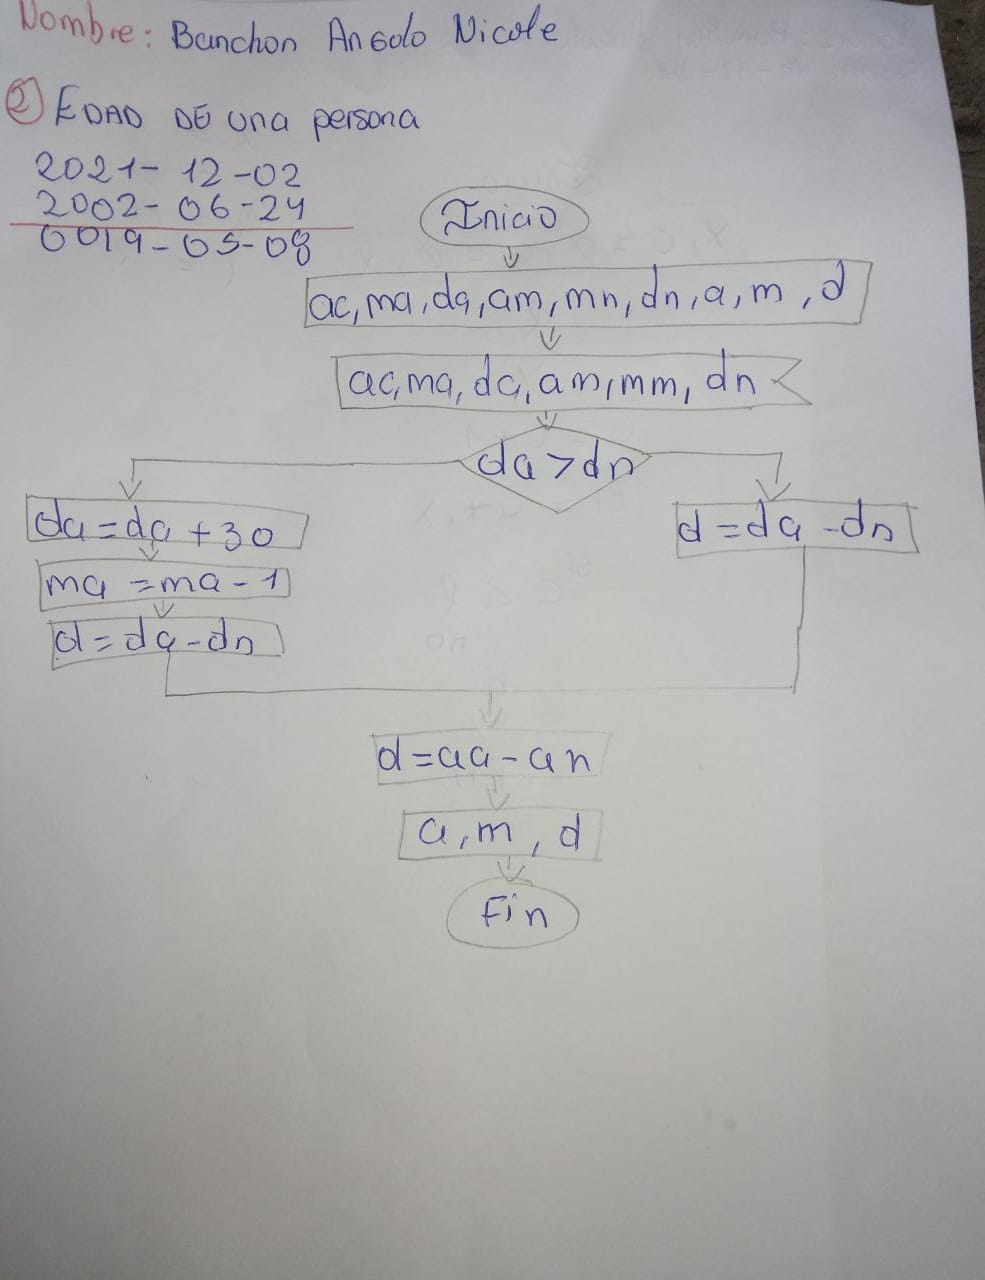 Nombre: Banchon Angolo Nicole
② EDAD DE una persona
2021-12-02
2002-06-24
0019-05-08
Inicio
ac, ma, da, am, mn, dn, a, m, d
ac, ma, da, am, mm, dn
da > dn
da = da + 30
d = da - dn
ma = ma - 1
d = da - dn
d = aa - an
a, m, d
Fin